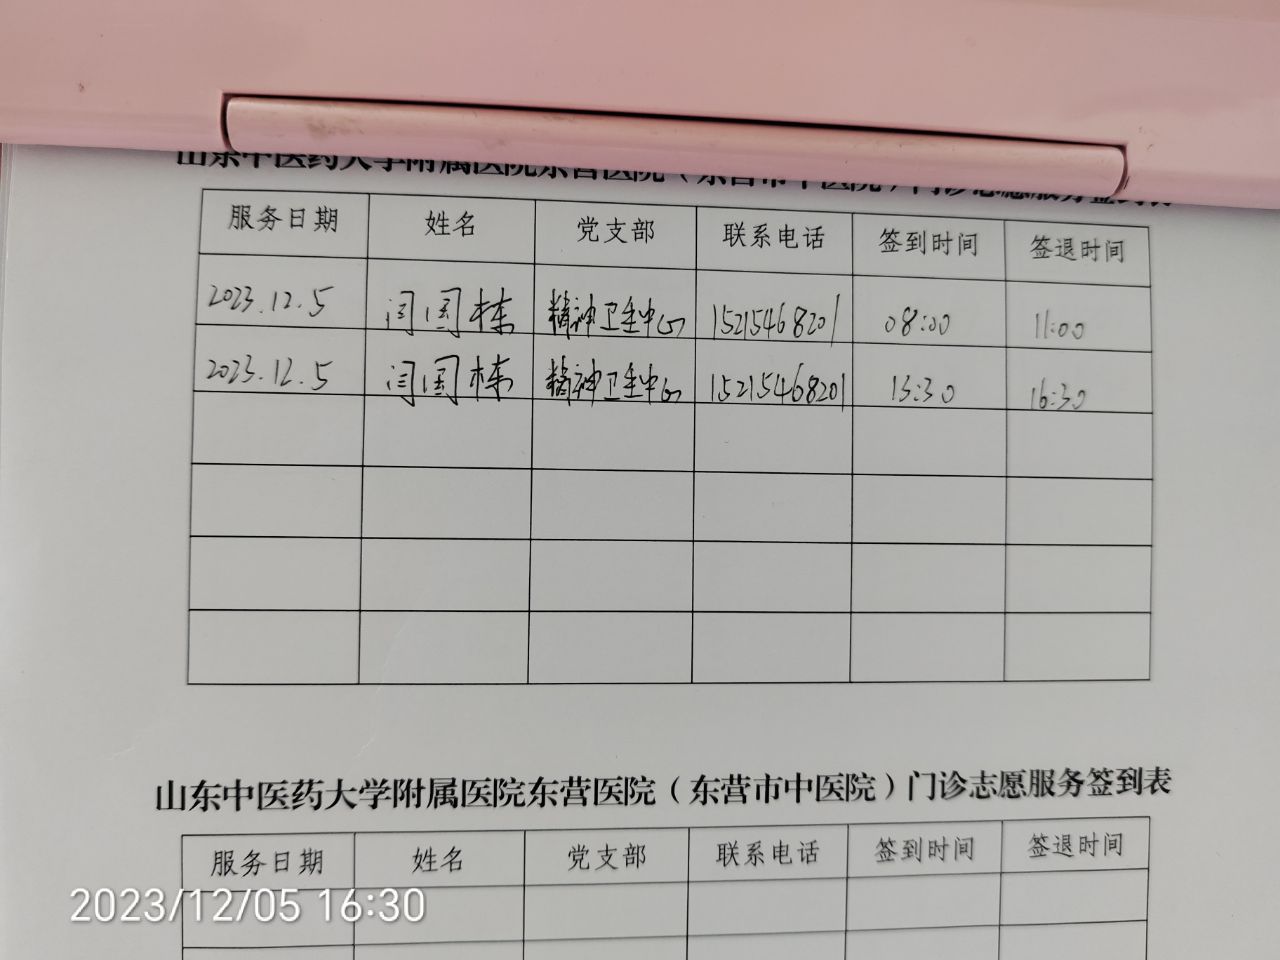 山东中医药大学附属医院东营医院（东营市中医院）门诊志愿服务签到表
服务日期 姓名 党支部 联系电话 签到时间 签退时间
2023.12.5 闫国栋 精神卫生中心 15215468201 08:00 11:00
2023.12.5 闫国栋 精神卫生中心 15215468201 13:30 16:30
山东中医药大学附属医院东营医院（东营市中医院）门诊志愿服务签到表
服务日期 姓名 党支部 联系电话 签到时间 签退时间
2023/12/05 16:30